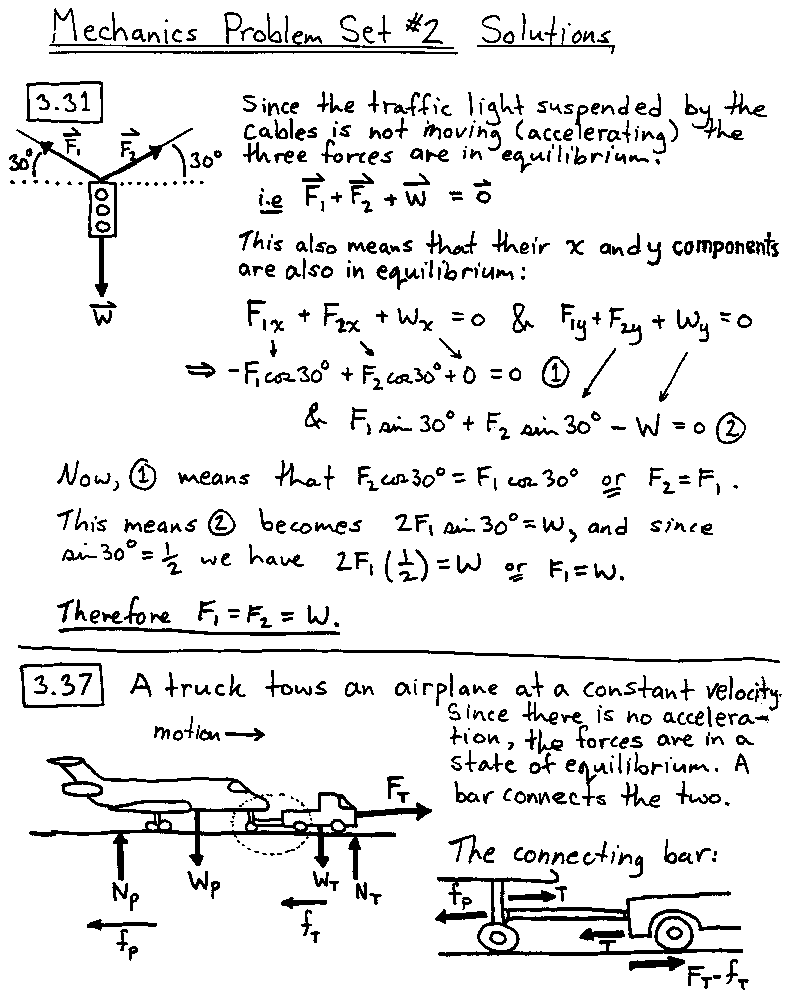 Mechanics Problem Set #2 Solutions
3.31
Since the traffic light suspended by the
cables is not moving (accelerating) the
three forces are in equilibrium.
30° F⃗₁ F⃗₂ 30°
W⃗
i.e F⃗₁ + F⃗₂ + W⃗ = 0⃗
This also means that their x and y components
are also in equilibrium:
F₁ₓ + F₂ₓ + Wₓ = 0 & F₁y + F₂y + Wy = 0
⇒ -F₁cos30° + F₂cos30° + 0 = 0 ①
& F₁ sin 30° + F₂ sin 30° - W = 0 ②
Now, ① means that F₂cos30° = F₁ cos 30° or F₂ = F₁.
This means ② becomes 2F₁ sin 30° = W, and since
sin 30° = 1/2 we have 2F₁ (1/2) = W or F₁ = W.
Therefore F₁ = F₂ = W.
3.37 A truck tows an airplane at a constant velocity.
Since there is no accelera-
tion, the forces are in a
state of equilibrium. A
bar connects the two.
motion →
F_T
N_P W_P W_T N_T
f_P f_T
The connecting bar:
f_P T
T
F_T - f_T